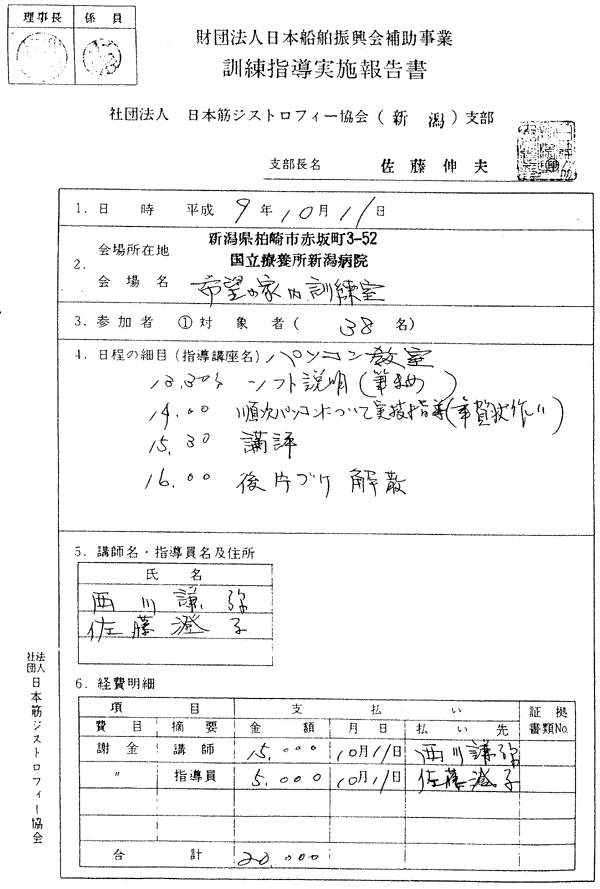 理事長 係員
財団法人日本船舶振興会補助事業
訓練指導実施報告書
社団法人 日本筋ジストロフィー協会(新潟)支部
支部長名 佐藤伸夫
1. 日 時 平成 9年10月11日
新潟県柏崎市赤坂町3-52
会場所在地
国立療養所新潟病院
2.
会場名 希望の家内訓練室
3. 参加者 ①対象者( 38名)
4. 日程の細目(指導講座名) パソコン教室
13.30 ソフト説明(筆まめ)
14.00 順次パソコンについて実技指導(年賀状作り)
15.30 講評
16.00 後片づけ 解散
5. 講師名・指導員名及住所
氏 名
西川謙弥
佐藤澄子
6. 経費明細
項 目 支 払 い 証拠書類No.
費目 摘要 金額 月日 払い先
謝金 講師 15.000 10月11日 西川謙弥
〃 指導員 5.000 10月11日 佐藤澄子
合 計 20.000
社団法人 日本筋ジストロフィー協会